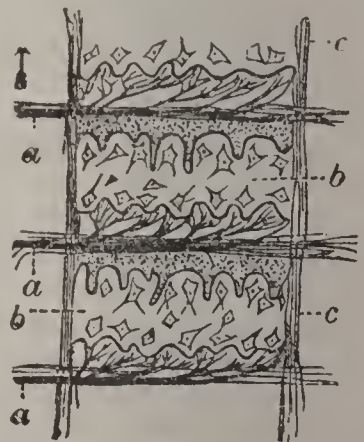 c
a
b
a
b
c
a